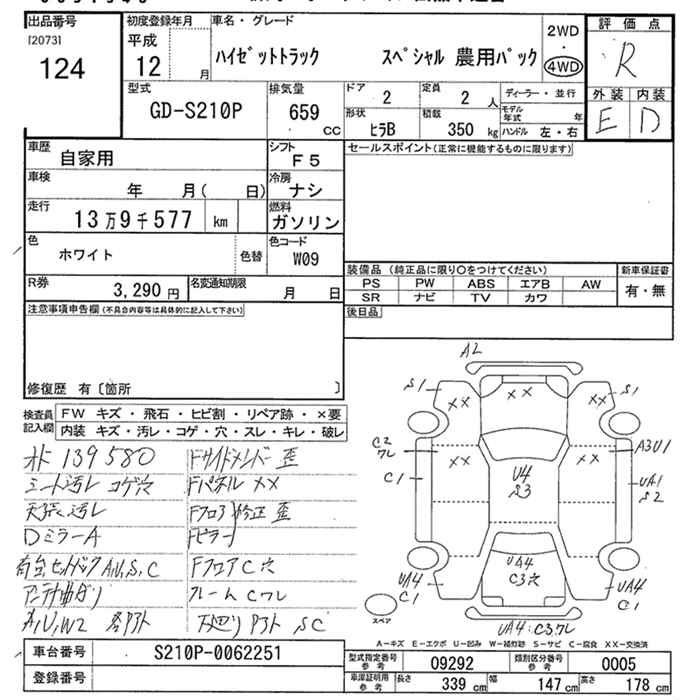 出品番号
[2073]
124
初度登録年月
平成
12
月
車名・グレード
ハイゼットトラック スペシャル 農用パック
2WD
4WD
評価点
R
外装 内装
E D
型式
GD-S210P
排気量
659
CC
ドア
2
定員
2 人
形状
ヒラB
積載
350 kg
ディーラー・並行
モデル年式 年
ハンドル 左・右
車歴
自家用
シフト
F5
車検
年 月( 日)
冷房
ナシ
走行
13万9千577 km
燃料
ガソリン
色
ホワイト
色替
色コード
W09
R券
3,290 円
名変通知期限
月 日
セールスポイント(正常に機能するものに限ります)
装備品 (純正品に限り〇をつけてください)
PS PW ABS エアB AW
SR ナビ TV カワ
新車保証書
有・無
後日品
注意事項申告欄(不具合内容等は具体的に記入して下さい)
修復歴 有〔箇所 〕
検査員記入欄
FW キズ・飛石・ヒビ割・リペア跡・×要
内装 キズ・汚レ・コゲ・穴・スレ・キレ・破レ
139580
シート汚レ コゲ穴
天張汚レ
DミラーA
A,U,S,C
アンテナ曲がり
A,U,W2
Fサイドメンバー歪
Fパネル XX
Fフロア 修正 歪
Fピラー
FフロアC穴
フレームCワレ
SC
A2
S1
S1
XX
XX
XX
XX
XX
C2
ワレ
C1
A3U1
UA1
S2
U4
S3
UA4
C3穴
UA4
C1
UA4
C1
UA4:C3ワレ
スペア
A-キズ E-エクボ U-凹み W-補修跡 S-サビ C-腐食 XX-交換済
車台番号
S210P-0062251
登録番号
型式指定番号
参考
09292
類別区分番号
参考
0005
車庫証明用
参考
長さ
339 cm
幅
147 cm
高さ
178 cm